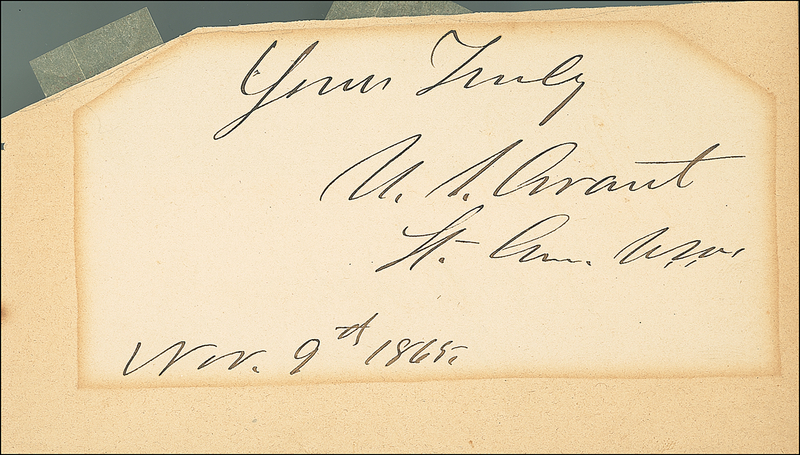 Yours Truly
U. S. Grant
Lt. Gen. U.S.A.
Nov. 9th 1865.